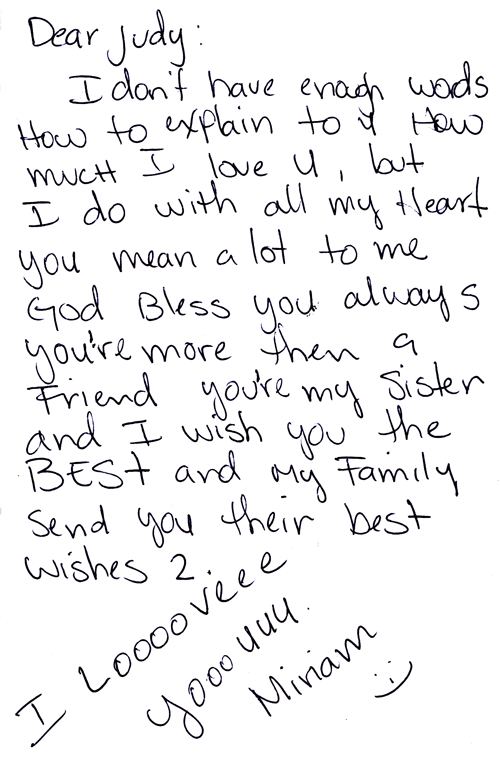 Dear Judy:
I don't have enagh words
How to explain to U How
mucH I love U, but
I do with all my Heart
you mean a lot to me
God Bless you always
you're more then a
Friend you're my Sister
and I wish you the
BEST and my Family
Send you their best
wishes 2.
I Looooveee
yooouuu.
Miriam
:)